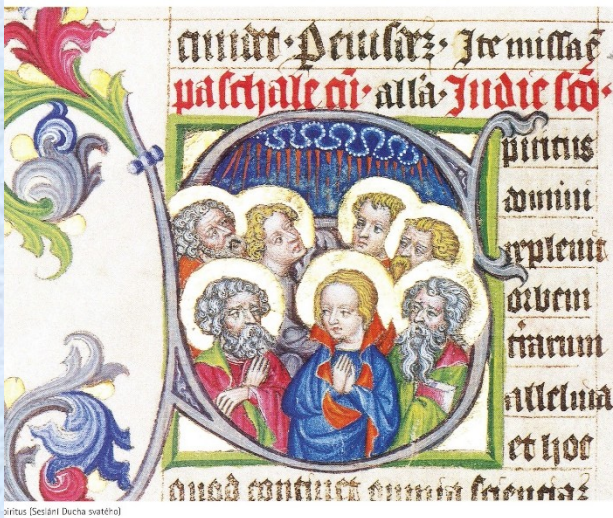 paschale cū· allā· In die scō·
piritus
domini
replevit
orbem
trarum
alleluia
et hoc
quod continet omnia scientiaz
piritus (Seslání Ducha svatého)